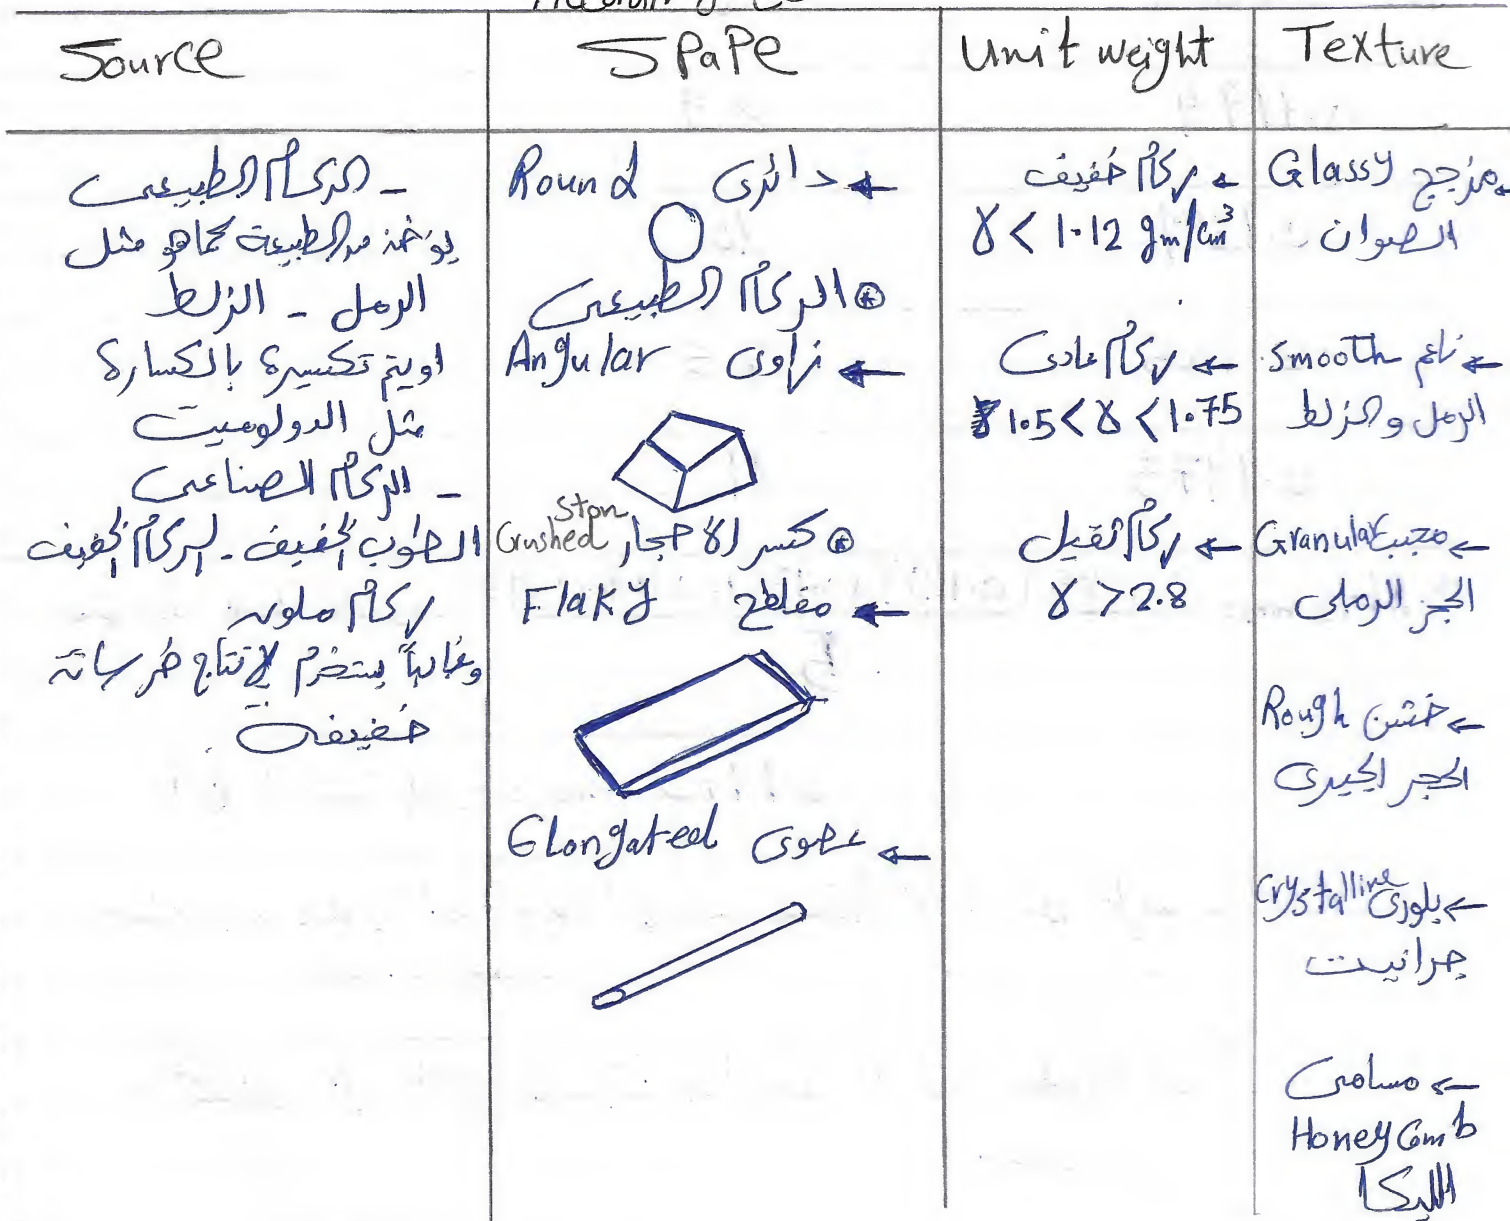 Source
SPaPe
Unit weight
Texture
- الركام الطبيعى
يؤخذ من الطبيعة كما هو مثل
الرمل - الزلط
او يتم تكسيرة بالكسارة
مثل الدولوميت
- الركام الصناعى
الطوب الخفيف - الركام الخفيف
ركام ملون
وغالباً يستخدم لإنتاج خرسانة
خفيفة
Round دائرى ←
⊛ الركام الطبيعى
Angular زاوى ←
⊛ كسر الأحجار Crushed Ston
Flaky مفلطح ←
Elongated عصوى ←
← ركام خفيف
γ < 1.12 gm/cm³
← ركام عادى
1.5 < γ < 1.75
← ركام ثقيل
γ > 2.8
Glassy مزجج ←
الصوان
Smooth ناعم ←
الرمل والزلط
Granular محبب ←
الحجر الرملى
Rough خشن ←
الحجر الجيرى
Crystalline بلورى ←
جرانيت
← مسامى
Honey Comb
الليكا